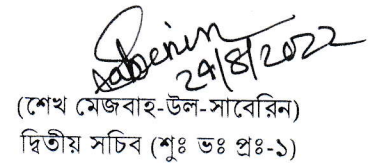 Saberin
24/8/2022
(শেখ মেজবাহ-উল-সাবেরিন)
দ্বিতীয় সচিব (শুঃ ভঃ প্রঃ-১)